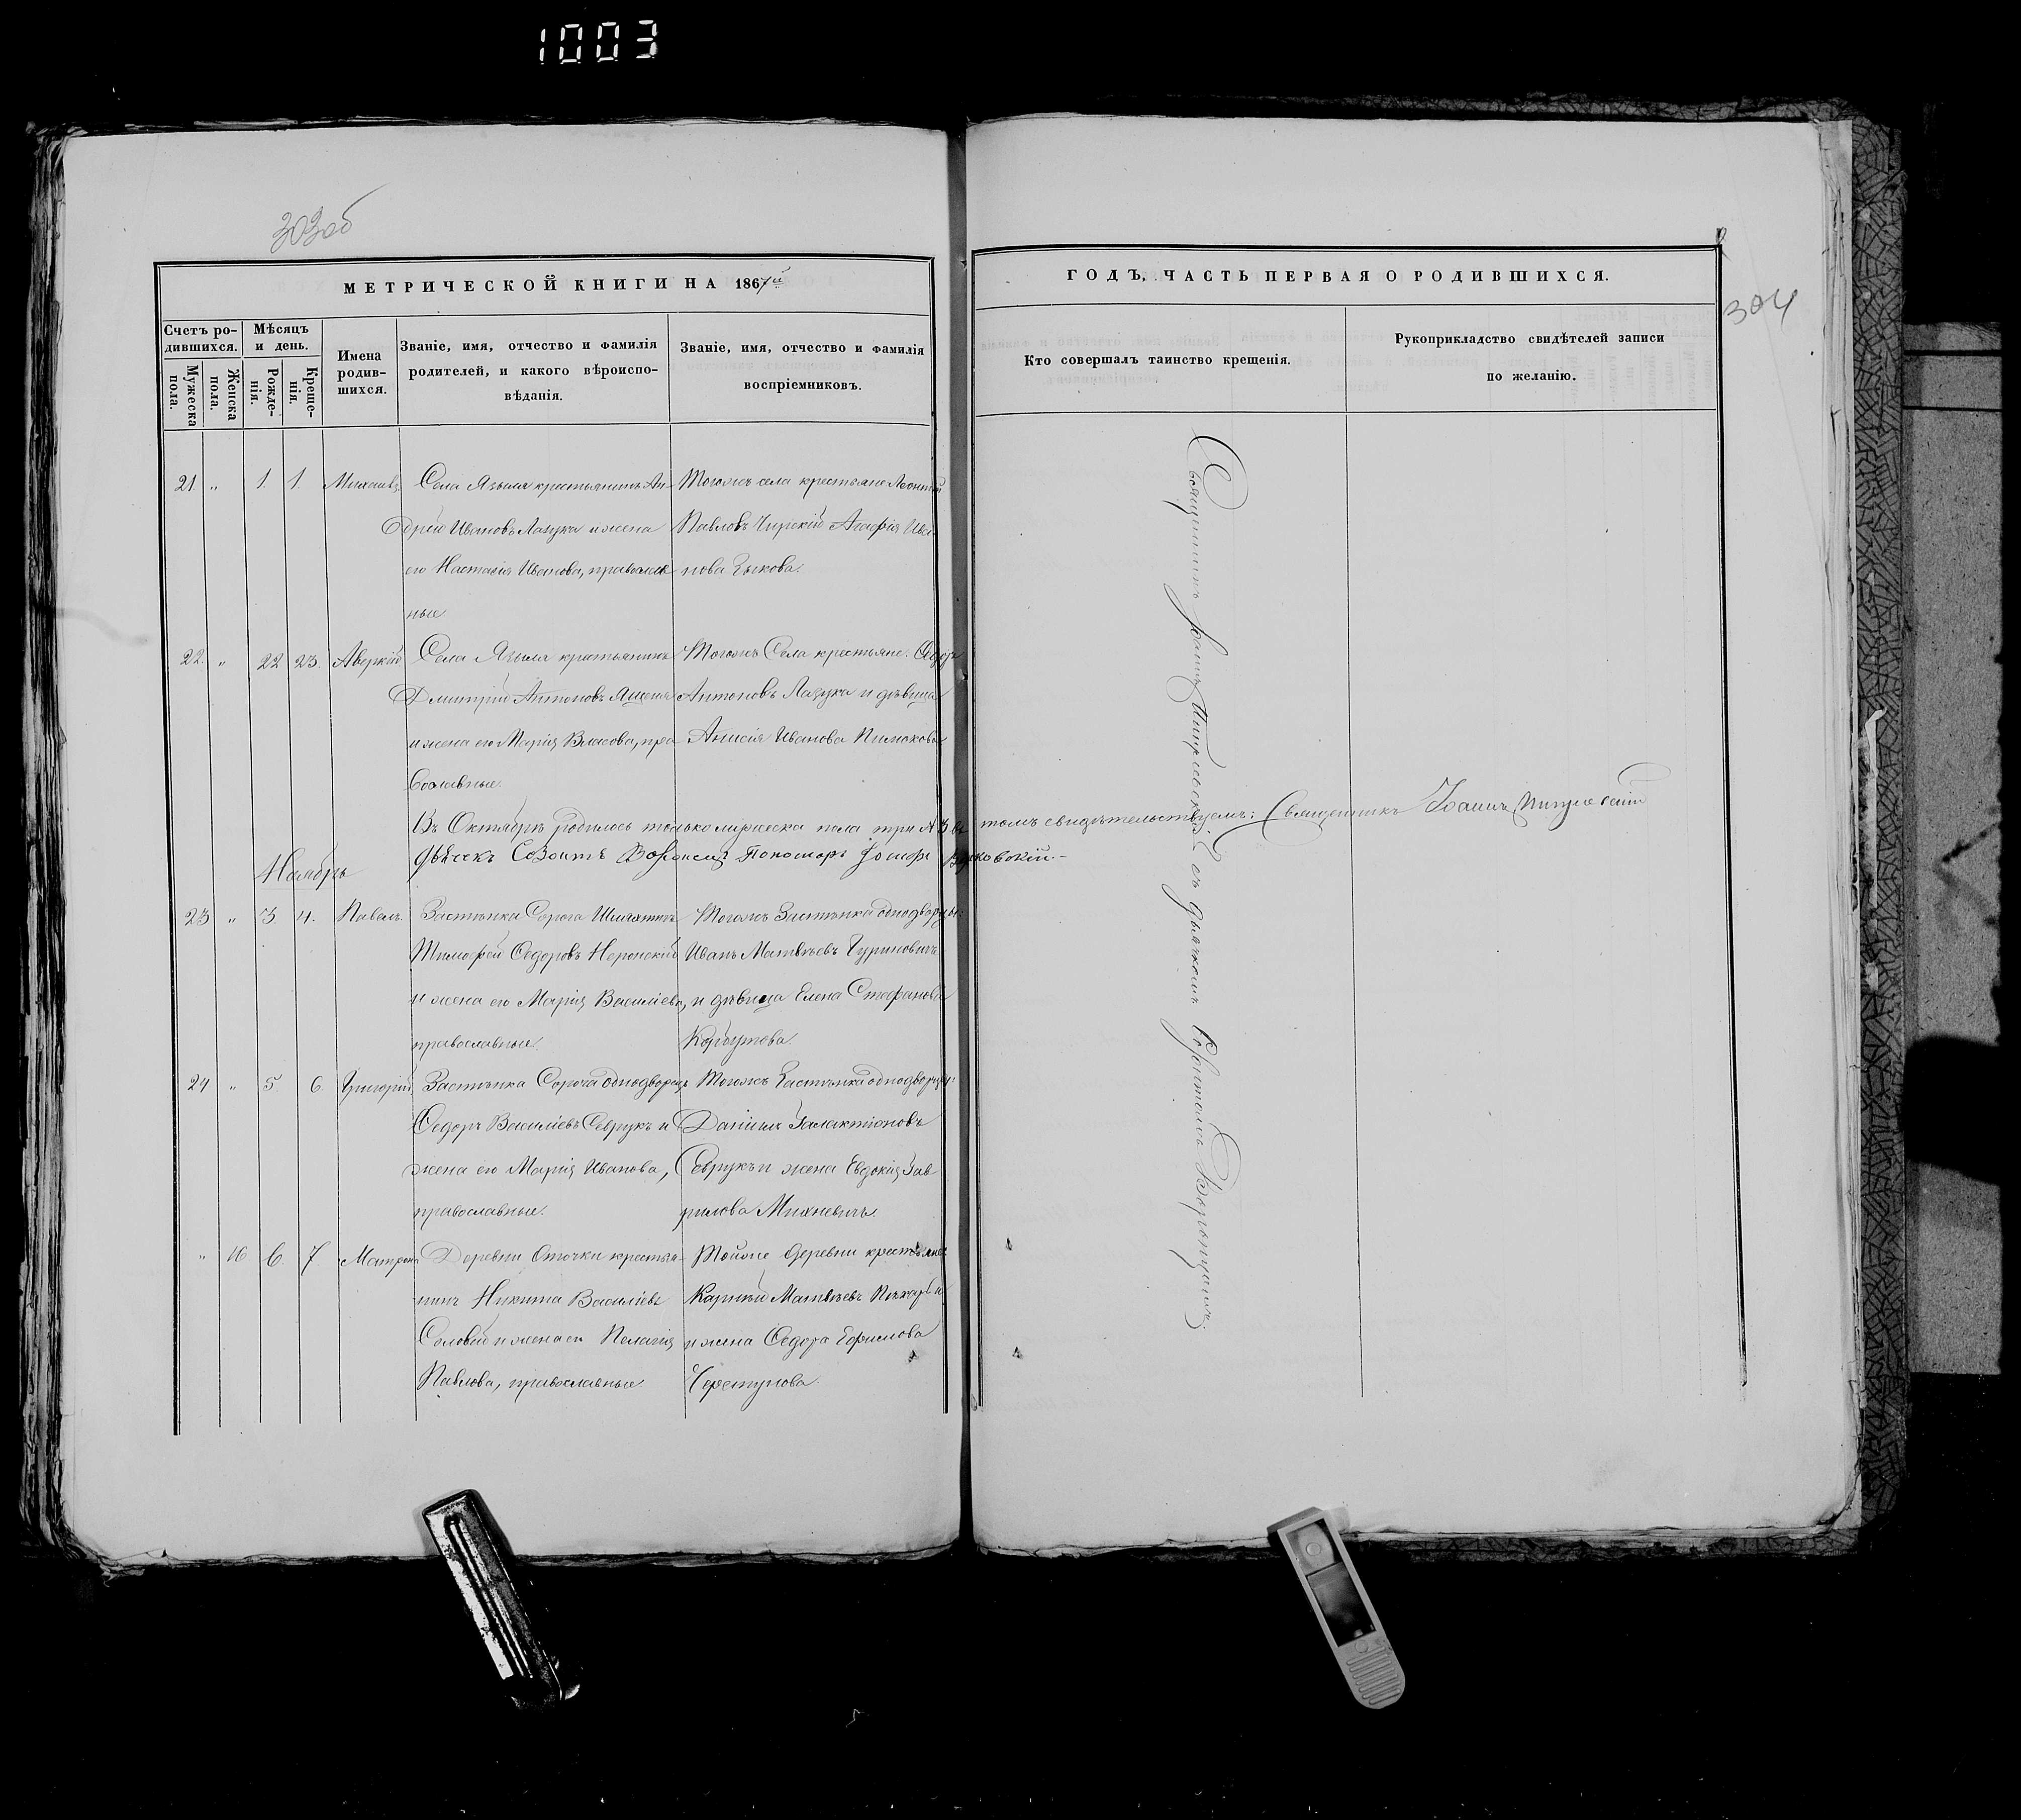 1003
303об
МЕТРИЧЕСКОЙ КНИГИ НА 1867й
ГОДЪ, ЧАСТЬ ПЕРВАЯ О РОДИВШИХСЯ.
304
Счетъ ро-
дившихся.
Мужеска
пола.
Женска
пола.
Мѣсяцъ
и день.
Рожде-
нія.
Креще-
нія.
Имена
родив-
шихся.
Званіе, имя, отчество и фамилія
родителей, и какого вѣроиспо-
вѣданія.
Званіе, имя, отчество и фамилія
воспріемниковъ.
Кто совершалъ таинство крещенія.
Рукоприкладство свидѣтелей записи
по желанію.
21. „ 1. 1. Михаилъ.
Села Языля крестьянинъ Ан-
дрей Ивановъ Лазука и жена
его Настасія Иванова, православ-
ные
Тогожъ села крестьяне Леонтій
Павловъ Чирскій Агафія Ива-
нова
22. „ 22 23. Аверкій
Села Языля крестьянинъ
Дмитрій Антоновъ
и жена его Марія Власова, пра-
вославные.
Тогожъ Села крестьяне: Ѳедоръ
Антоновъ Лазука и дѣвица
Анисія Иванова
Въ Октябрѣ родилось только мужеска пола три № 3 въ томъ свидѣтельствуемъ: Священникъ Іоаннъ
Пономарь Іосифъ
Ноябрь
23 „ 3 4. Павелъ.
Застѣнка Сорога Шляхтичъ
Тимофей Ѳедоровъ Неронскій
и жена его Марія Василіева,
православные.
Тогожъ Застѣнка однодворцы:
Иванъ Матвѣевъ Гуриновичъ
и дѣвица Елена Стефанова
Корбутова.
24 „ 5. 6. Григорій,
Застѣнка Сорога однодворецъ
Ѳедоръ Василіевъ Севрукъ и
жена его Марія Иванова,
православные.
Тогожъ Застѣнка однодворцы:
Даніилъ Галактіоновъ
Севрукъ и жена Евдокія Гав-
рилова Михневичъ.
„ 10 6. 7. Матрона
Деревни Оточки крестья-
нинъ Никита Василіевъ
Соловей и жена его Пелагія
Павлова, православные
Тойже деревни крестьяне:
Карпъ Матвѣевъ
и жена Ѳедора Ефимова
Священникъ Іоаннъ
съ дьячкомъ